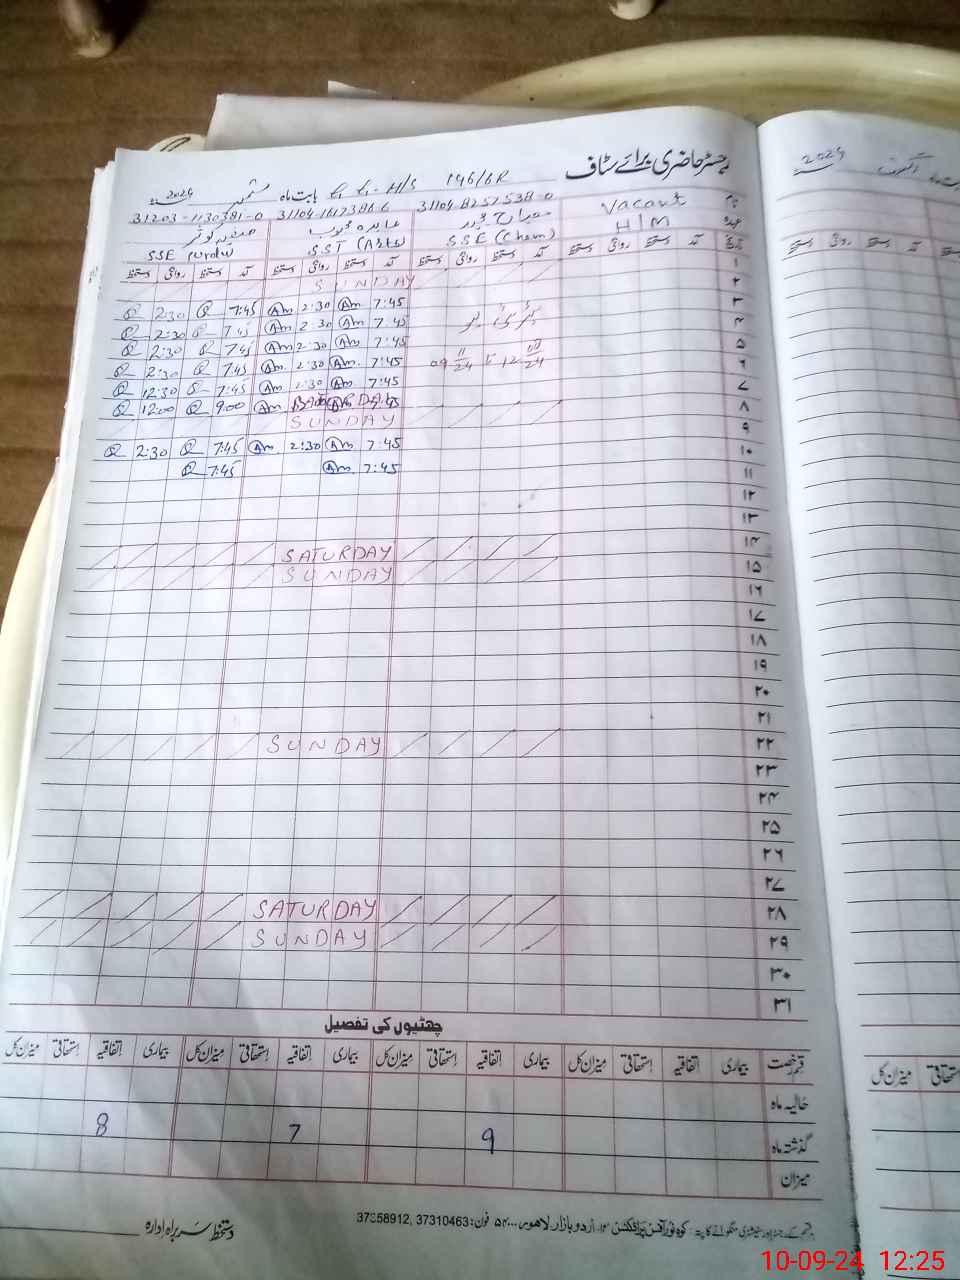 رجسٹر حاضری برائے سٹاف
146/6R H/S بابت ماہ ستمبر 2024
نام Vacant 31104-8257538-0 31104-1617386-6 31203-1130381-0
عہدہ H/M
SSE (Chem) SST (Arts) SSE (Urdu)
تاریخ آمد دستخط روانگی دستخط آمد دستخط روانگی دستخط آمد دستخط روانگی دستخط آمد دستخط روانگی دستخط
۱ SUNDAY
۲ 7:45 Am 2:30 Am 7:45 Q 2:30 Q
۳ 7:45 Am 2:30 Am 7:45 Q 2:30 Q
۴ 7:45 Am 2:30 Am 7:45 Q 2:30 Q
۵ 7:45 Am 2:30 Am 7:45 Q 2:30 Q
۶ 7:45 Am 2:30 Am 7:45 Q 12:30 Q
۷ Am 9:00 Q 12:00 Q
۸ SUNDAY
۹ 7:45 Am 2:30 Am 7:45 Q 2:30 Q
۱۰ 7:45 Am 7:45 Q
۱۱
۱۲
۱۳
۱۴ SATURDAY
۱۵ SUNDAY
۱۶
۱۷
۱۸
۱۹
۲۰
۲۱
۲۲ SUNDAY
۲۳
۲۴
۲۵
۲۶
۲۷
۲۸ SATURDAY
۲۹ SUNDAY
۳۰
۳۱
چھٹیوں کی تفصیل
قسم رخصت بیماری اتفاقیہ استحقاقی میزان کل بیماری اتفاقیہ استحقاقی میزان کل بیماری اتفاقیہ استحقاقی میزان کل بیماری اتفاقیہ استحقاقی میزان کل
حالیہ ماہ
گذشتہ ماہ 9 7 8
میزان
اردو بازار لاہور فون: 37310463, 37358912
دستخط سربراہ ادارہ
2024
روانگی دستخط آمد
استحقاقی میزان کل
10-09-24 12:25